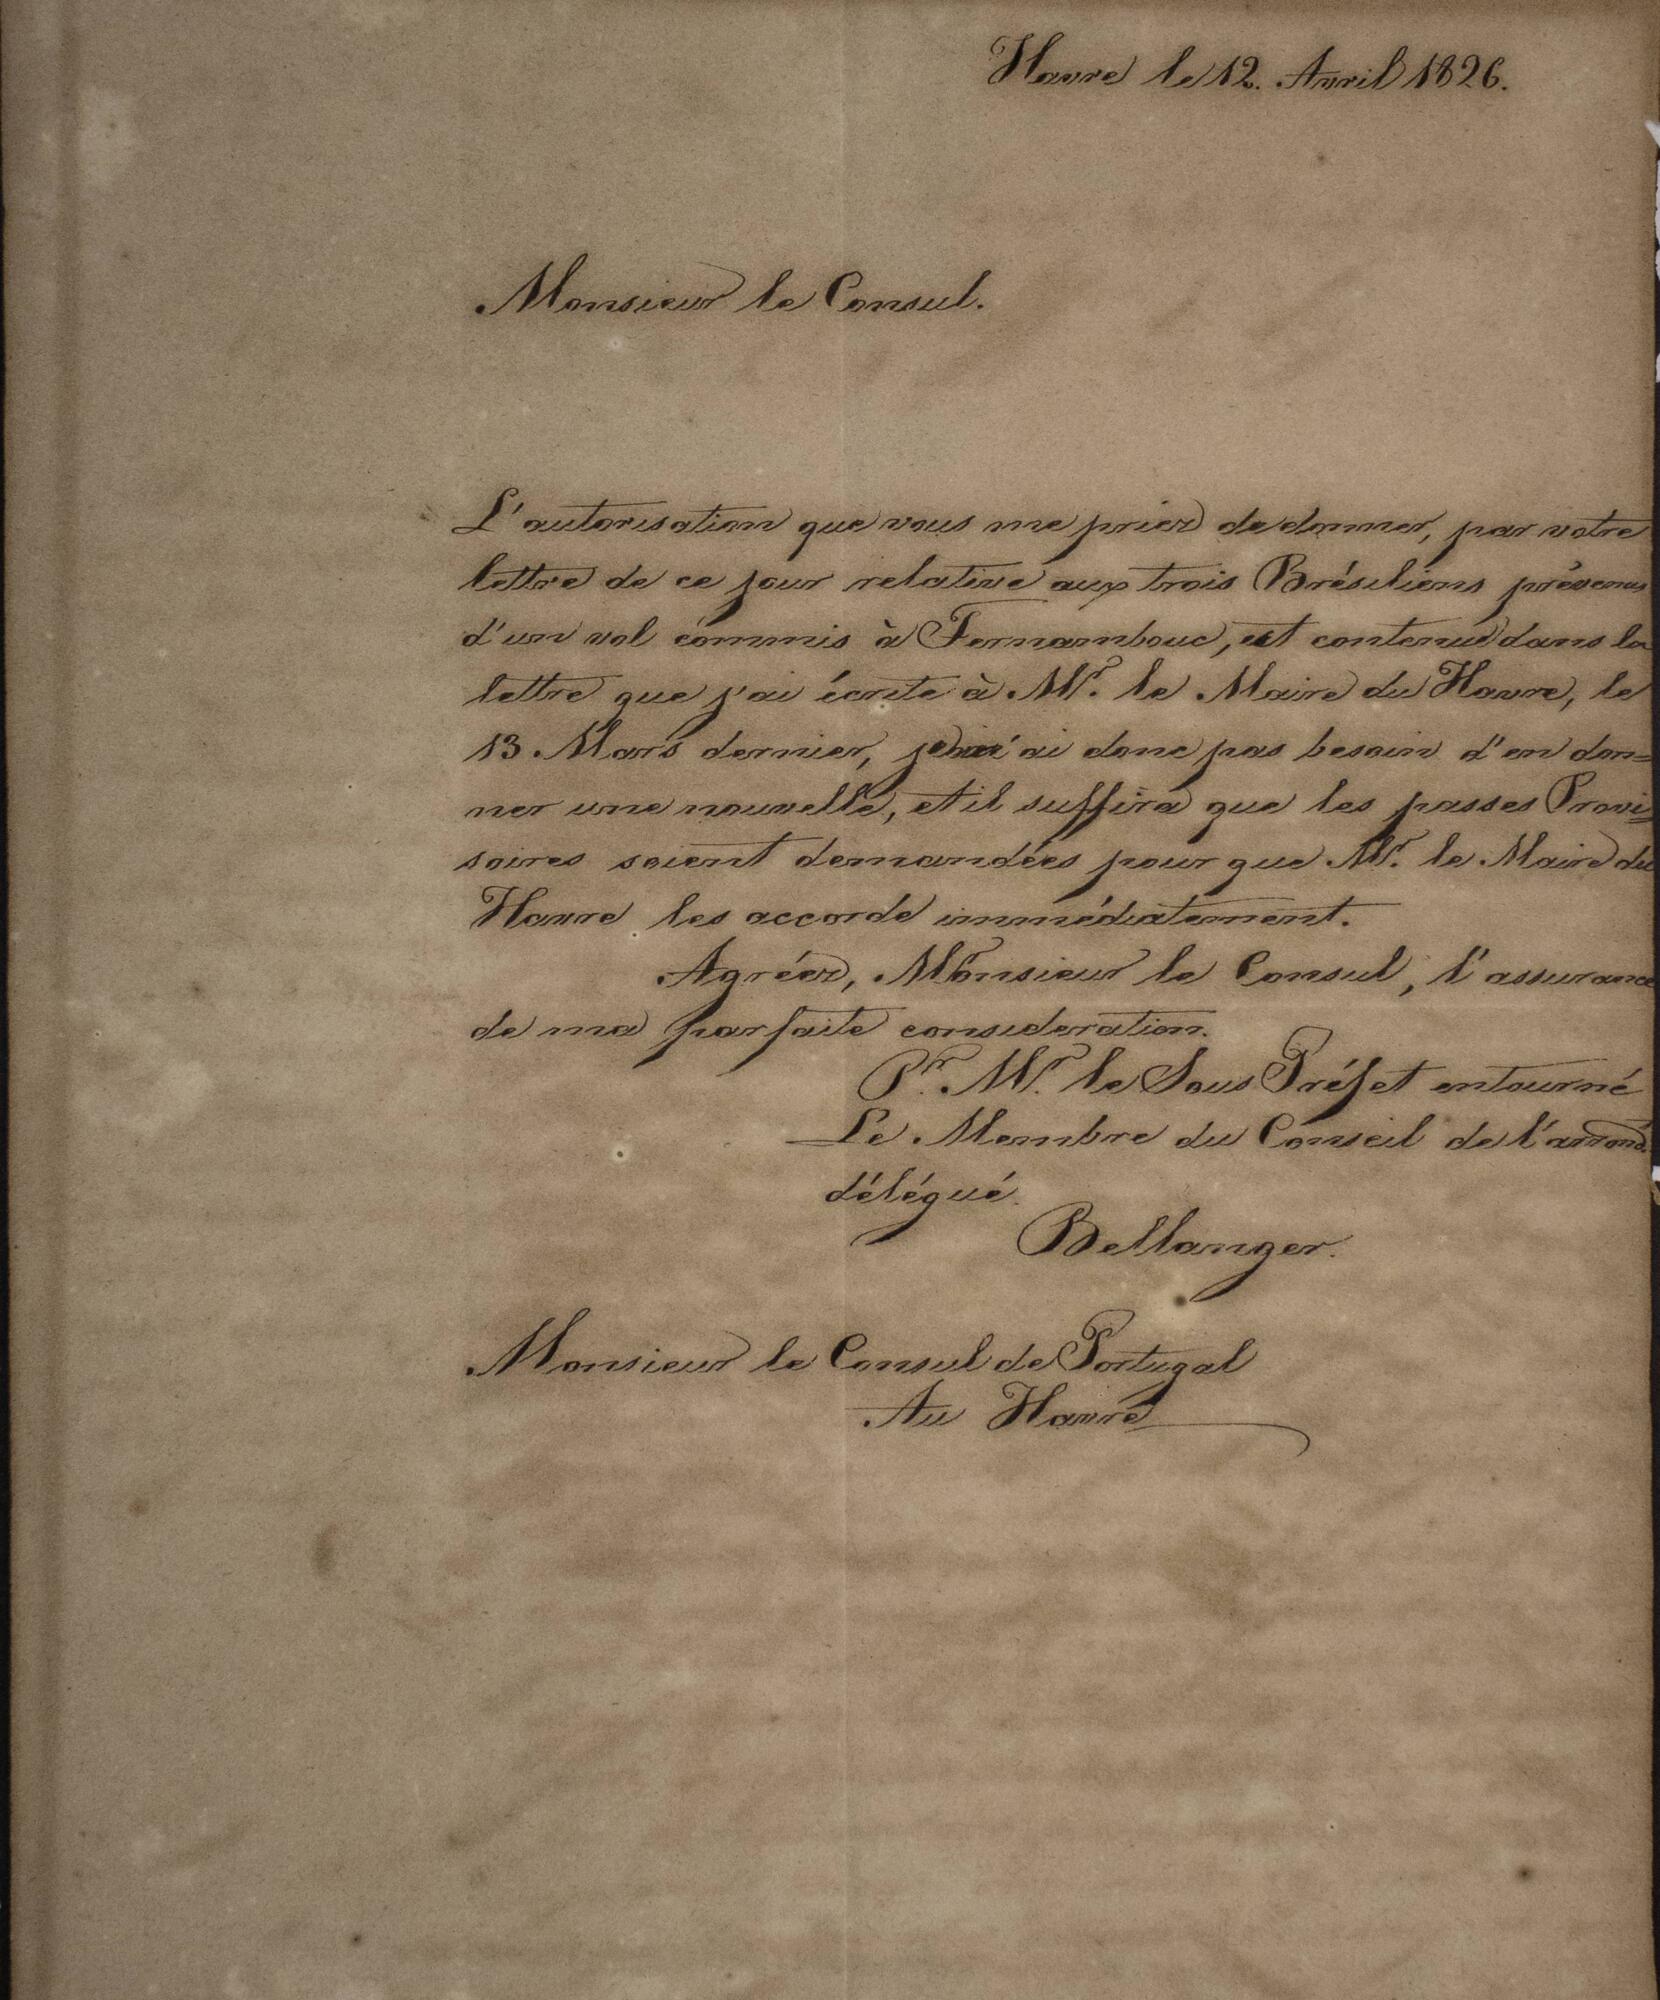 Havre le 12. Avril 1826.
Monsieur le Consul.
L'autorisation que vous me priez de donner, par votre
lettre de ce jour relative aux trois Brésiliens prévenus
d'un vol commis à Fernambouc, est contenue dans la
lettre que j'ai écrite à Mr. le Maire du Havre, le
13. Mars dernier, je n'ai donc pas besoin d'en don=
ner une nouvelle, et il suffira que les passes Provi=
soires soient demandées pour que Mr. le Maire du
Havre les accorde immédiatement.
Agréez, Monsieur le Consul, l'assurance
de ma parfaite consideration.
Pr. Mr. le Sous Préfet en tourné
Le Membre du Conseil de l'arrond.
délégué.
Bellanger.
Monsieur le Consul de Portugal
Au Havre